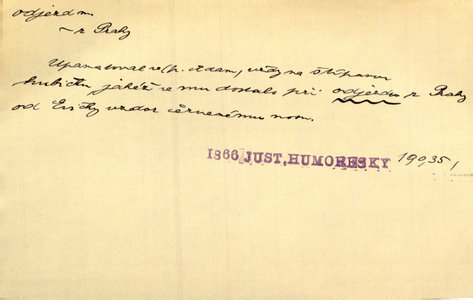 odjezdu
~ z Prahy
Upamatoval se p. Adam, vždy na štípanou
hubičku, jakéž se mu dostalo při odjezdu z Prahy
od Eričky vzdor červenému nosu.
1866 JUST, HUMORESKY 190, 35,